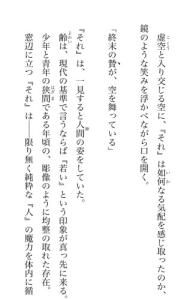 虚空と入り交じる空に、『それ』は如何なる気配を感じ取ったのか、
鏡のような笑みを浮かべながら口を開く。
「終末の贄が、空を舞っている」
『それ』は、一見すると人間の姿をしていた。
齢は、現代の基準で言うならば『若い』という印象が真っ先に来る。
少年と青年の狭間である年頃の、彫像のように均整の取れた存在。
窓辺に立つ『それ』は――限り無く純粋な『人』の魔力を体内に循